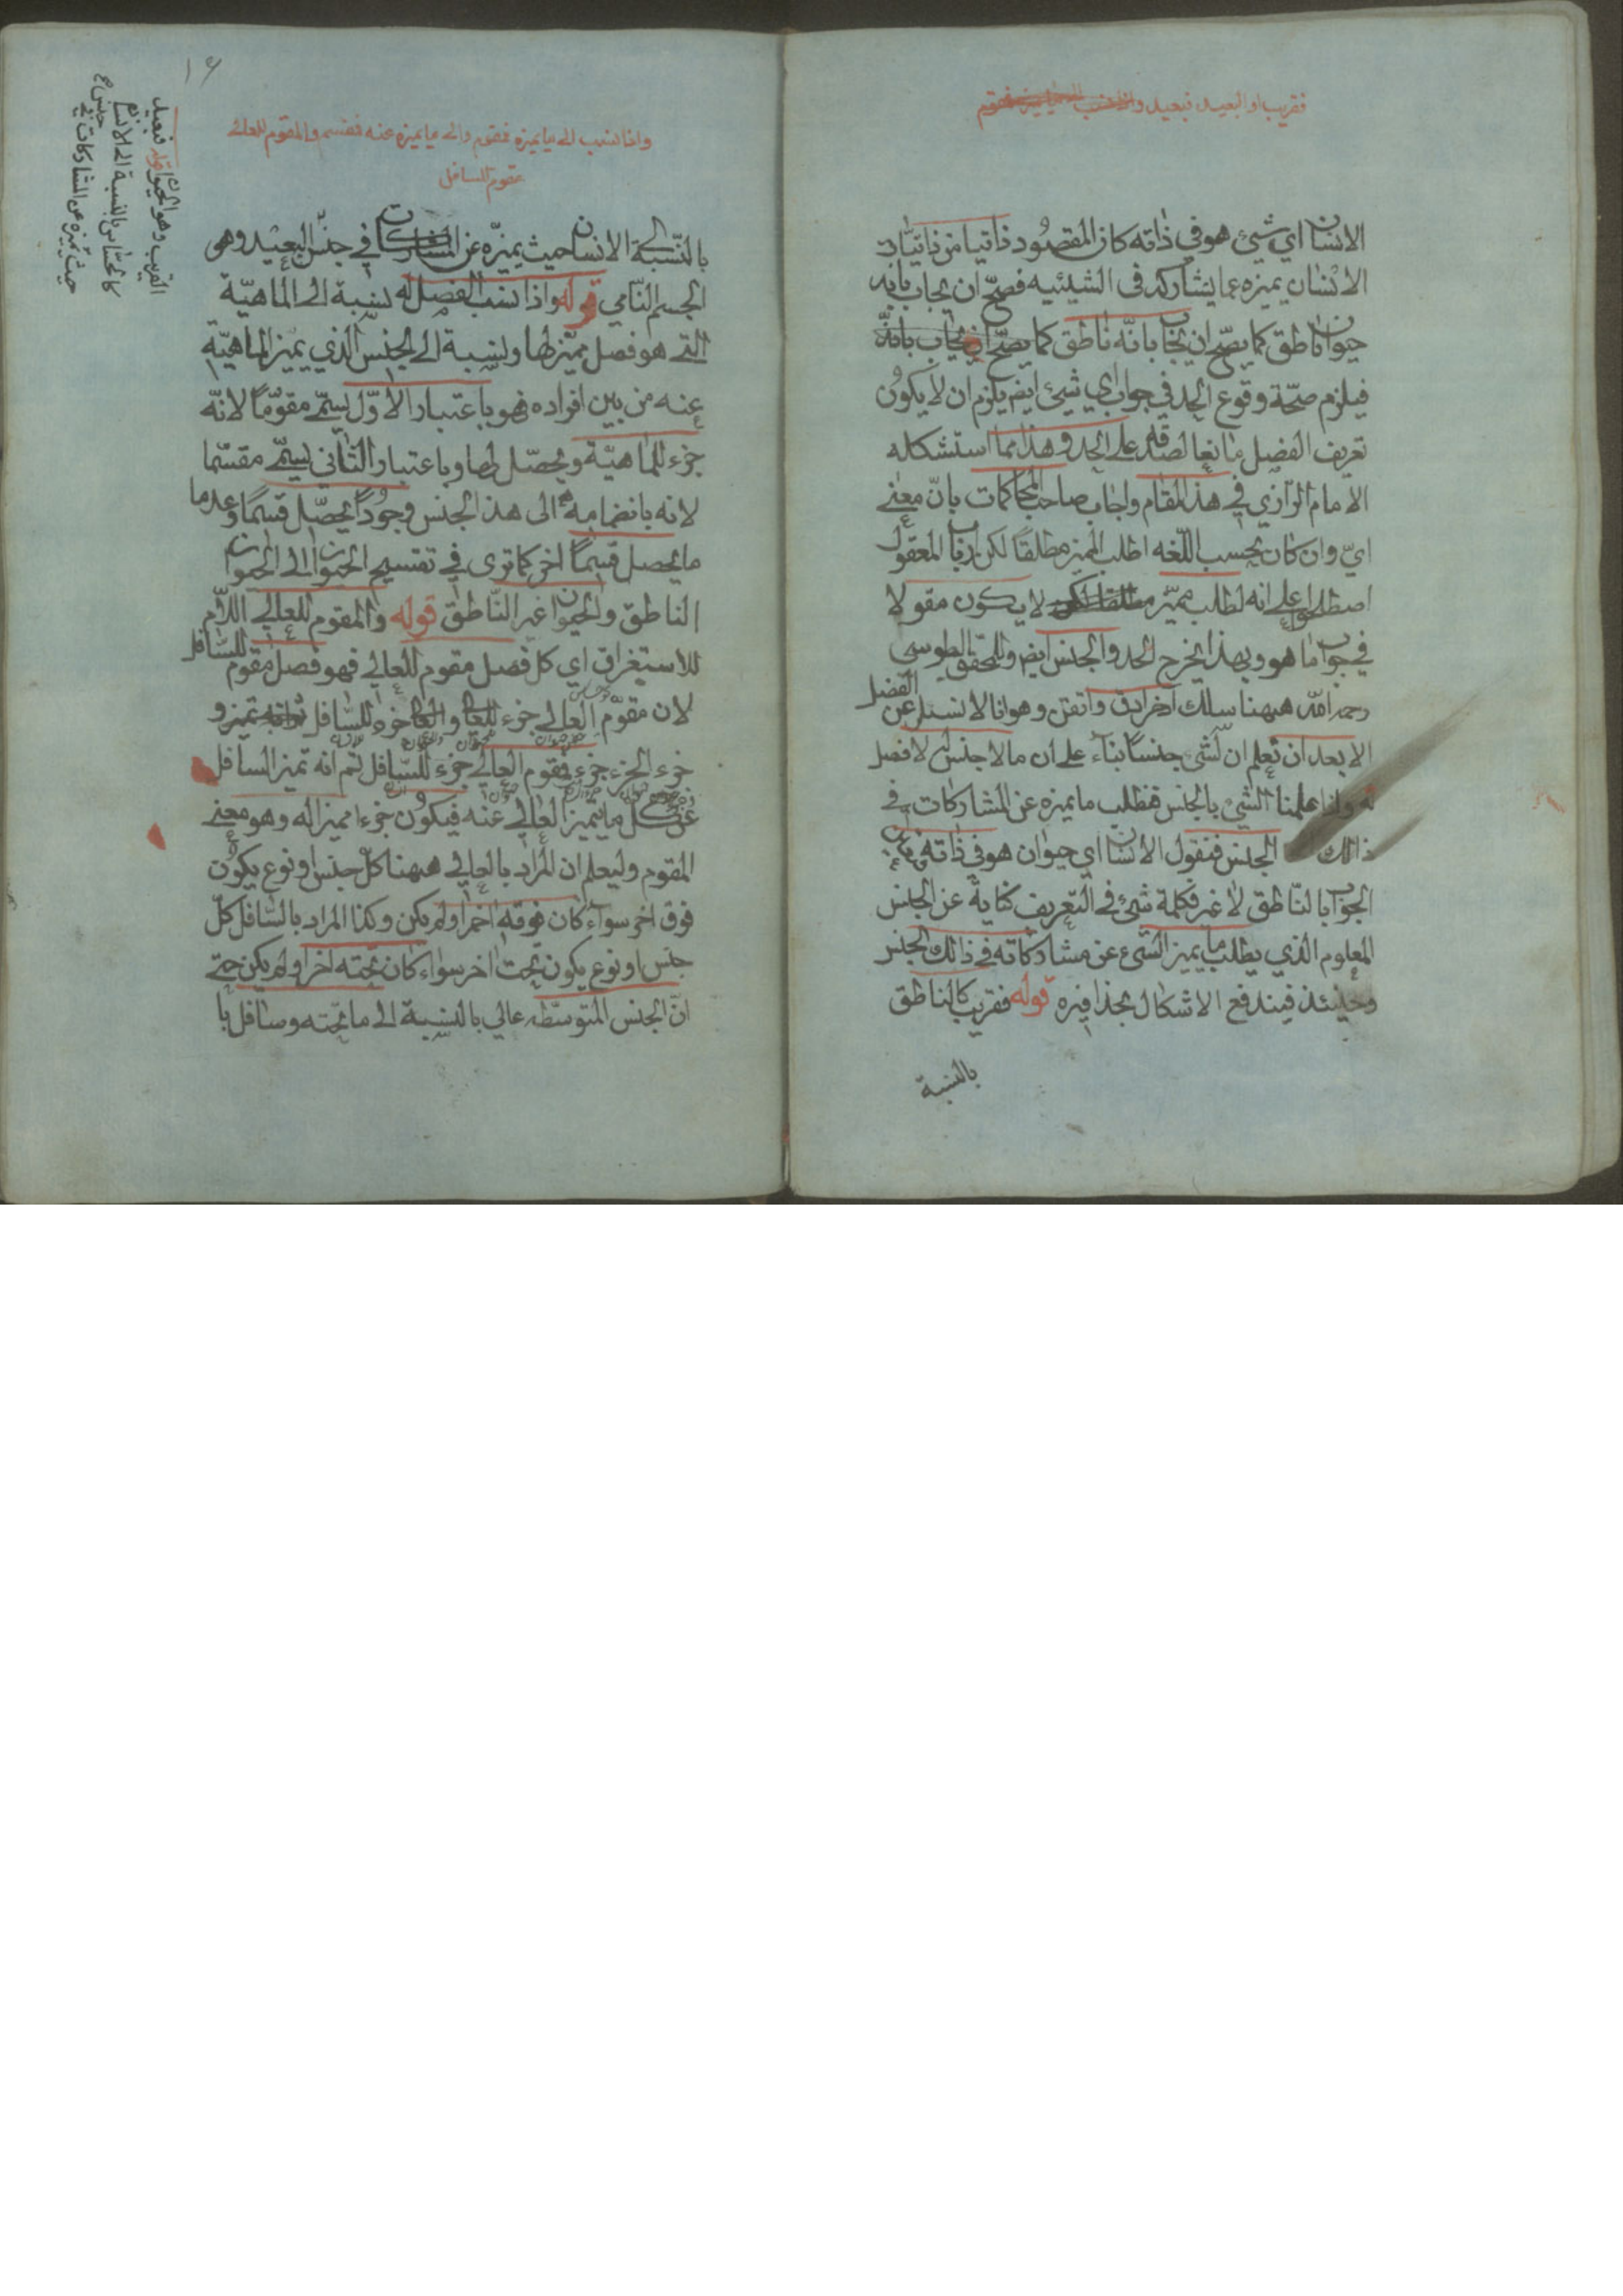 فقريب او البعيد فبعيد واذا نسب الى ما يميزه فمقوم
الانسان اي شيئ هو في ذاته كان المقصود ذاتيا من ذاتيات
الانسان يميزه عما يشاركه في الشيئيه فصح ان يجاب بانه
حيوان ناطق كما يصح ان يجاب بانه ناطق كما يصح ان يجاب بانه
فيلزم صحة وقوع الحد في جواب اي شيئ ايضا يلزم ان لا يكون
تعريف الفصل مانعا لصدقه على الحد وهذا مما استشكله
الامام الرازي في هذا المقام واجاب صاحب المحاكمات بان معنى
اي وان كان بحسب اللغه اطلب المميز مطلقا لكن ارباب المعقول
اصطلحوا على انه لطلب مميز لا يكون مقولا
في جواب ما هو وبهذا يخرج الحد والجنس ايضا وللمحقق الطوسي
رحمه الله ههنا مسلك اخر ادق واتقن وهو انا لا نسئل عن الفصل
الا بعد ان نعلم ان لشئ جنسا بناء على ان ما لا جنس له لا فصل
له واذا علمنا الشئ بالجنس فنطلب ما يميزه عن المشاركات في
ذالك الجنس فنقول الانسان اي حيوان هو في ذاته فتعين
الجواب بالناطق لا غير فكلمة شئ في التعريف كناية عن الجنس
المعلوم الذي يطلب ما يميز الشئ عن مشاركاته في ذالك الجنس
وحينئذ فيندفع الاشكال بحذافيره قوله فقريب كالناطق
بالنسبة
١٤
واذا نسب الى ما يميزه فمقوم والى ما يميزه عنه فمقسم والمقوم للعالى
مقوم السافل
القريب وهو الحيوان قوله فبعيد
كالحساس بالنسبة الى الانسان
حيث يميزه عن المشاركات في
بالنسبة الى الانسان حيث يميزه عن المشاركات في جنس البعيد وهو
الجسم النامي قوله واذا نسب الفصل له نسبة الى الماهية
التي هو فصل مميز لها ونسبة الى الجنس الذي يميز الماهية
عنه من بين افراده فهو باعتبار الاول يسمى مقوما لانه
جزء للماهية ويحصل لها وباعتبار الثاني يسمى مقسما
لانه بانضمامه الى هذ الجنس وجودا يحصل قسما وعدما
ما يحصل قسما اخر كما ترى في تقسيم الحيوان الى الحيوان
الناطق والحيوان الغير الناطق قوله والمقوم للعالي اللام
للاستغراق اي كل فصل مقوم للعالي فهو فصل مقوم للسافل
لان مقوم العالي جزء للعالي والعالي جزء للسافل
جزء الجزء جزء فمقوم العالي جزء للسافل ثم انه تميز السافل
عن كل ما يتميز العالي عنه فيكون جزءا مميزا له وهو معنى
المقوم وليعلم ان المراد بالعالي ههنا كل جنس او نوع يكون
فوق اخر سواء كان فوقه اخر او لم يكن وكذا المراد بالسافل كل
جنس او نوع يكون تحت اخر سواء كان تحته اخر او لم يكن حتى
ان الجنس المتوسطه عالي بالنسبة الى ما تحته وسافل با